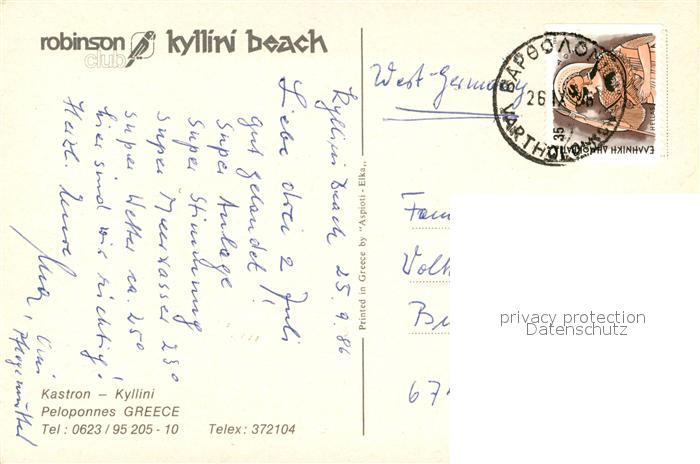 robinson club kyllini beach
Kyllini Beach 25.9.86
Liebe drei 2 Juli
gut gelandet!
Super Anlage
Super Stimmung
Super Meerwasser 23°
Super Wetter ca. 25°
hier sind wir richtig!
Herzl. Eure
Kastron – Kyllini
Peloponnes GREECE
Tel : 0623 / 95 205 - 10 Telex : 372104
Printed in Greece by "Aspioti - Elka"
West-Germany
ΒΑΡΘΟΛΟΜ
26
35
ΕΛΛΗΝΙΚΗ ΔΗΜΟΚΡΑΤΙΑ
HELLAS
Fam
Volk
67
privacy protection
Datenschutz